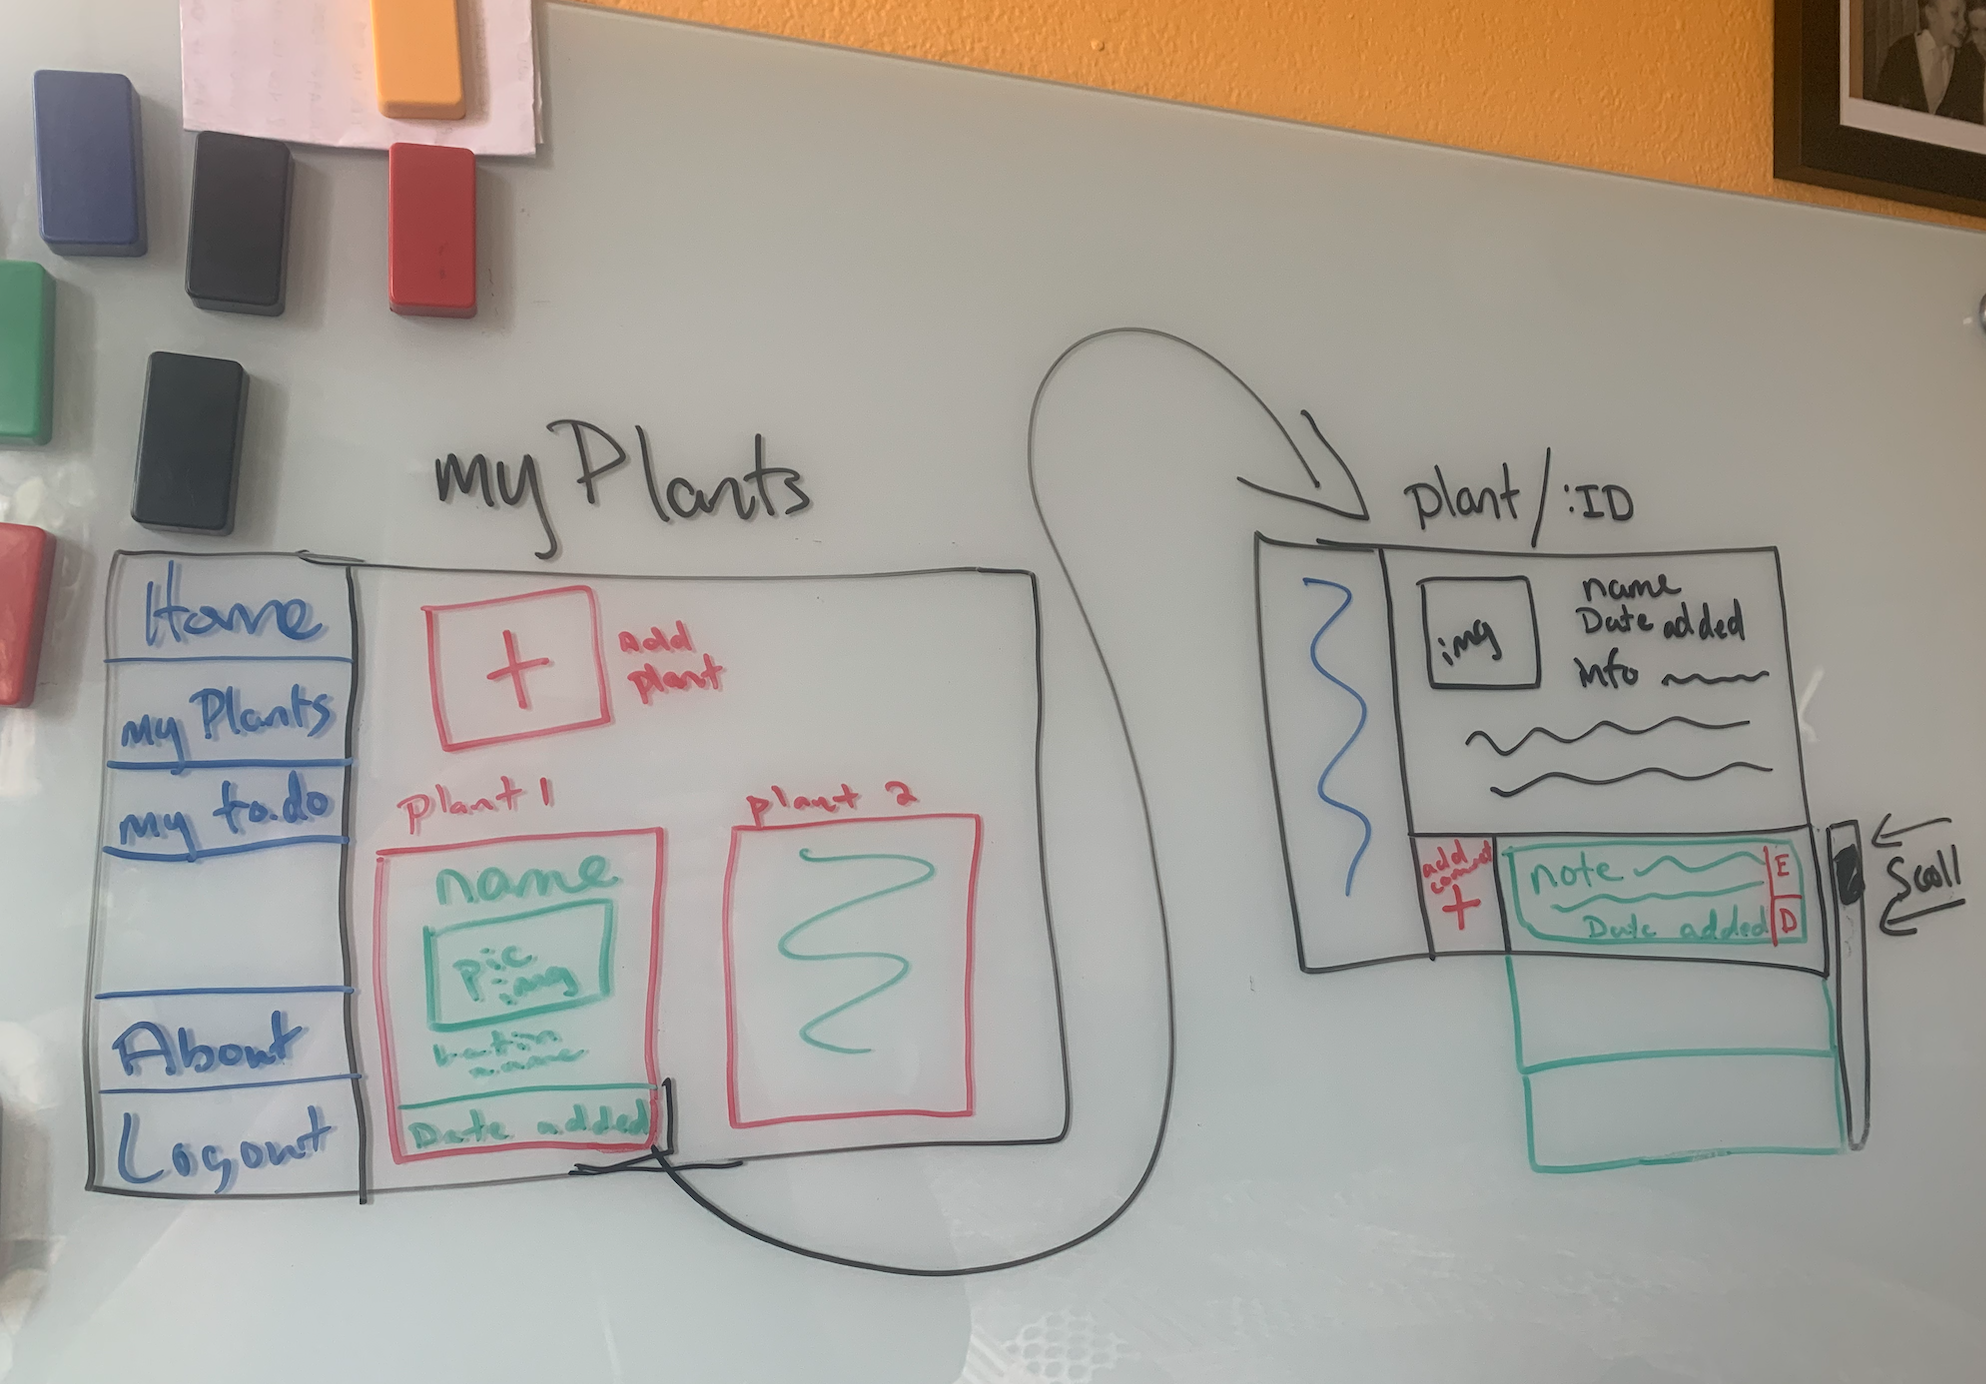 my Plants
Home
my Plants
my to.do
About
Logout
+
Add
plant
Plant 1
name
pic
img
Latin
name
Date added
plant 2
plant/:ID
img
name
Date added
info
add
+
note
Date added
E
D
Scroll